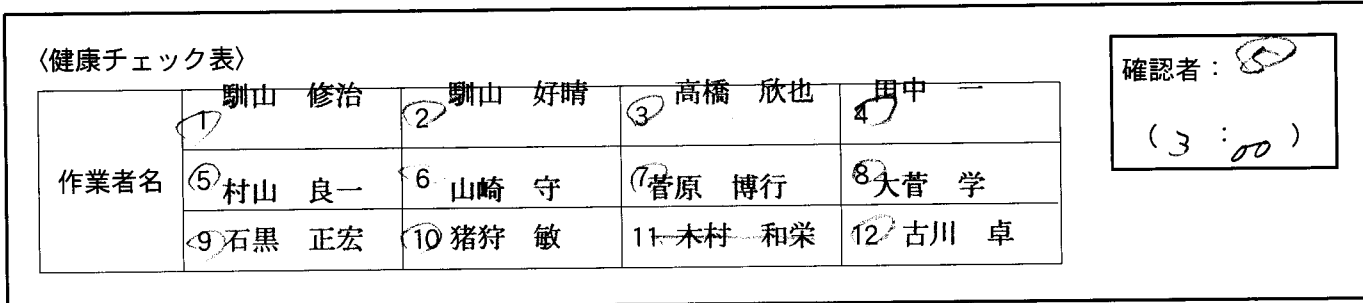 〈健康チェック表〉
確認者：⑤
(3:00)
作業者名
1 馴山 修治
2 馴山 好晴
3 高橋 欣也
4 田中 一
5 村山 良一
6 山崎 守
7 菅原 博行
8 大菅 学
9 石黒 正宏
10 猪狩 敏
11 木村 和栄
12 古川 卓